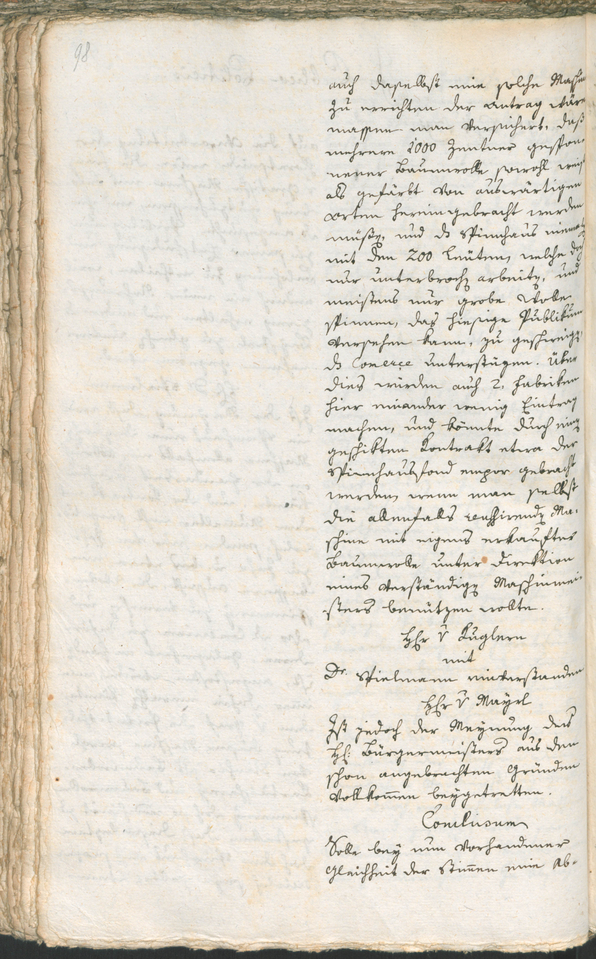 98
auch daselbst eine solche Maschin
zu errichten der Antrag wäre
massen man versichert, daß
mehrere 1000 Zentner gespon-
nener Baumwolle sowohl weis
als gefärbt von auswärtigen
Orten hereingebracht werden
müßen, und ds Spinnhaus niemals
mit den 200 Leüten, welche doch
nur unterbrochen arbeiten, und
meistens nur grobe Wolle
spinnen, das hiesige Publikum
versehen kann, zu geschweigen
ds Comerce unterstüzen. Über
dies würden auch 2. Fabriken
hier einander wenig Eintrag
machen, und könnte durch einen
geschikten Kontrakt etwa der
Spinnhausfond empor gebracht
werden, wenn man selbst
die allenfalls Ma-
schine mit eigens erkaufter
Baumwolle unter Direktion
eines verständigen Maschinmei-
sters benützen wollte.
Hhr v Kuglern
mit
Dr. Spielmann einverstanden
Hhr v Mayrl
Ist jedoch der Meynung des
Hh: Bürgermeisters aus den
schon angebrachten Gründen
vollkommen beygetretten.
Conclusum
Solle bey nun vorhandener
Gleichheit der Stimmen eine Ab-